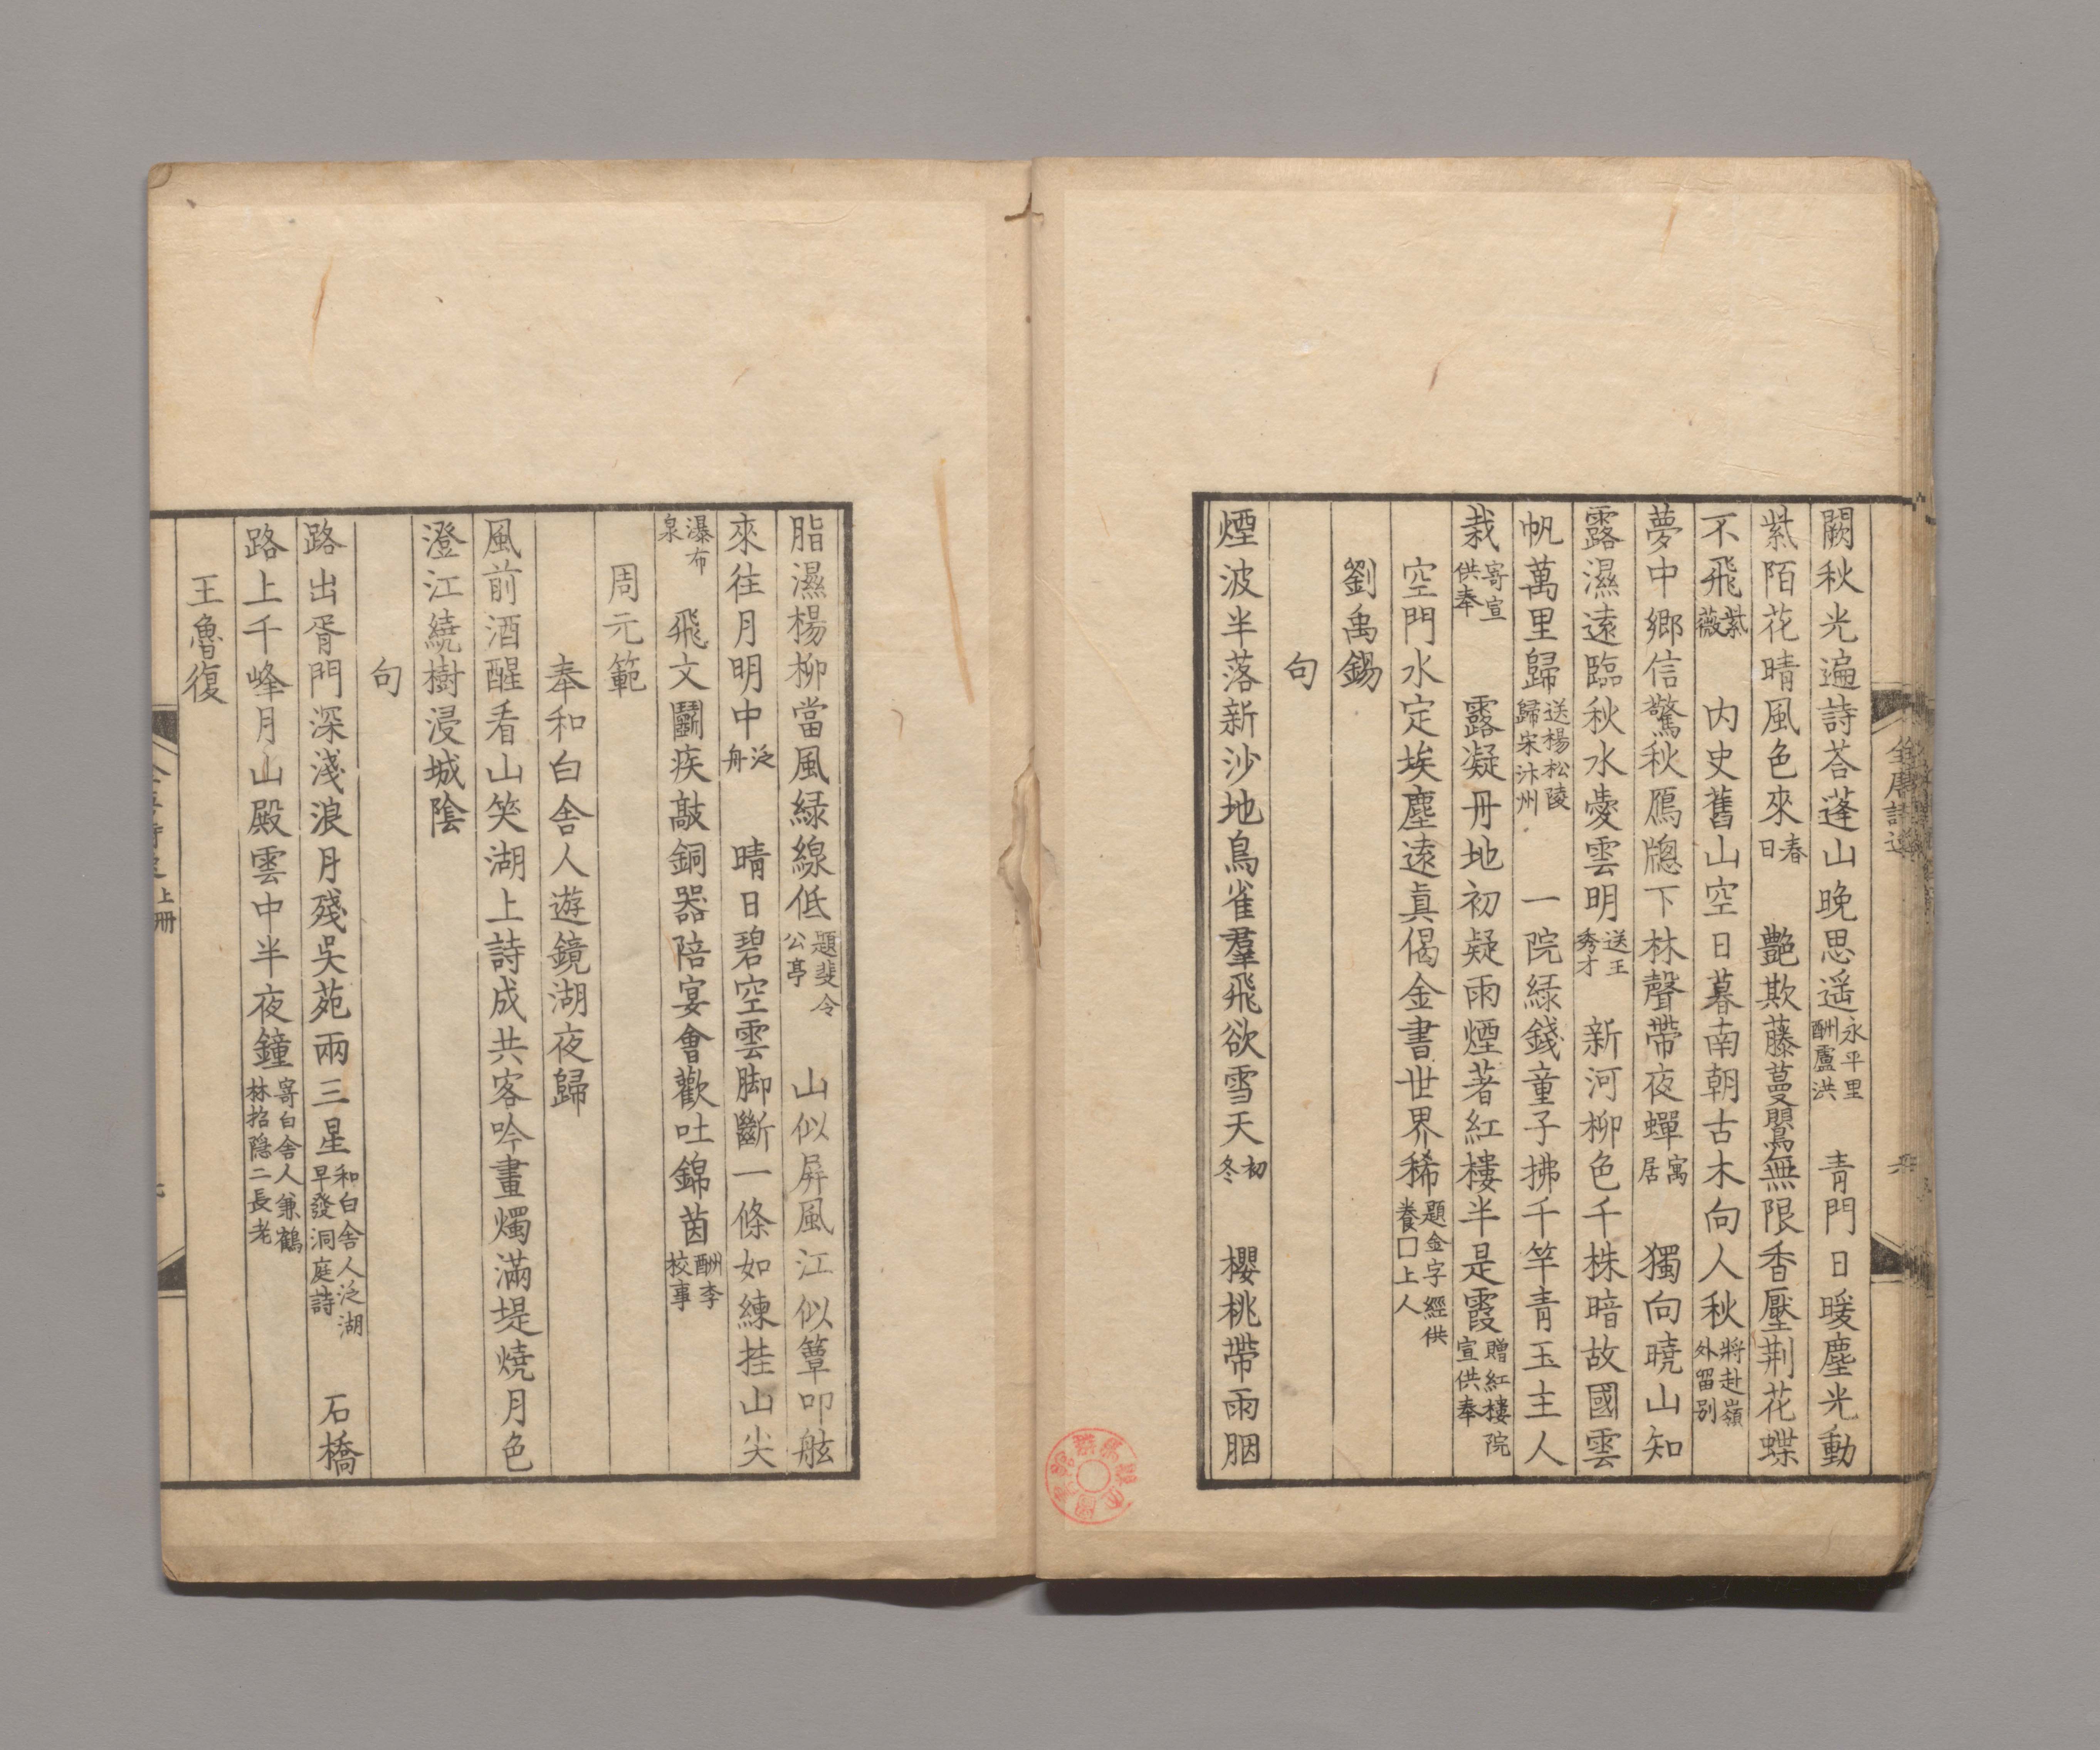 闕秋光遍詩荅蓬山晚思遥永平里酬盧洪 青門日暖塵光動
紫陌花晴風色來春日 艶欺藤蔓鸎無限香壓荆花蝶
不飛紫薇 内史舊山空日暮南朝古木向人秋將赴嶺外留别
夢中鄉信驚秋鴈牕下林聲帶夜蟬寓居 獨向曉山知
露濕遠臨秋水愛雲明送王秀才 新河柳色千株暗故國雲
帆萬里歸送楊松陵歸宋汴州 一院緑錢童子拂千竿青玉主人
栽寄宣供奉 露凝丹地初疑雨煙著紅樓半是霞贈紅樓院宣供奉
空門水定埃塵遠真偈金書世界稀題金字經供養口上人
劉禹錫
句
煙波半落新沙地鳥雀羣飛欲雪天初冬 櫻桃帶雨胭
脂濕楊柳當風緑線低題斐令公亭 山似屏風江似簟叩舷
來往月明中泛舟 晴日碧空雲脚斷一條如練挂山尖
瀑布泉 飛文鬬疾敲銅器陪宴會歡吐錦茵酬李校事
周元範
奉和白舍人遊鏡湖夜歸
風前酒醒看山笑湖上詩成共客吟畫燭滿堤燒月色
澄江繞樹浸城陰
句
路出胥門深淺浪月殘吳苑兩三星和白舍人泛湖早發洞庭詩 石橋
路上千峰月山殿雲中半夜鐘寄白舍人兼鶴林招隱二長老
王魯復
上册